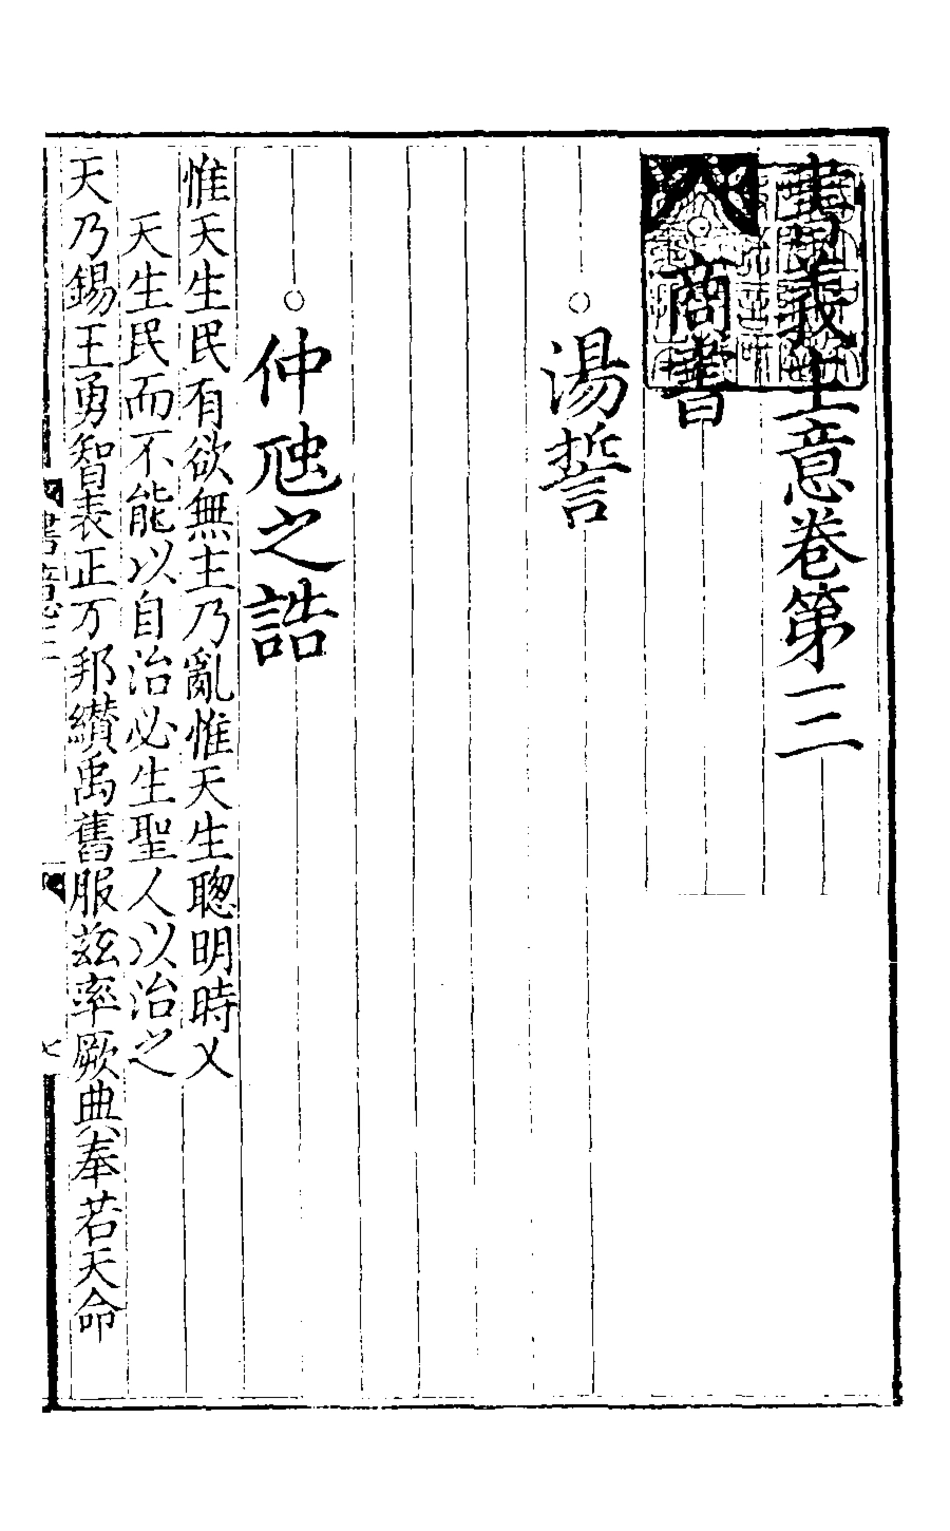 書義主意卷第三
商書
○湯誓
○仲虺之誥
惟天生民有欲無主乃亂惟天生聰明時乂
天生民而不能以自治必生聖人以治之
天乃錫王勇智表正万邦纘禹舊服兹率厥典奉若天命
書意三
七